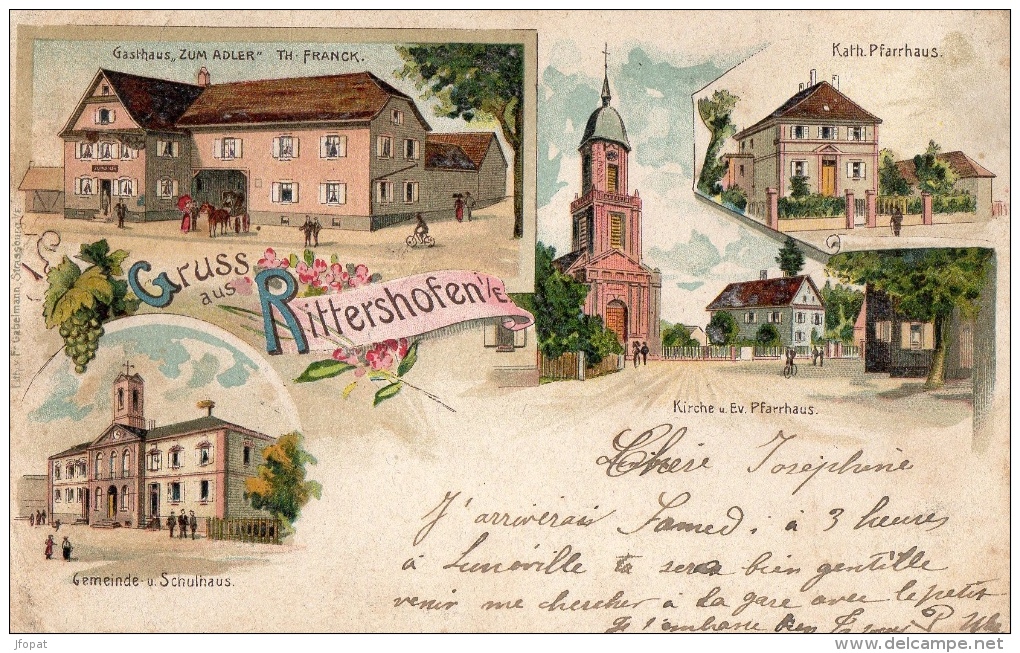 Gasthaus „ZUM ADLER" TH. FRANCK.
Kath. Pfarrhaus.
Gruss
aus
Rittershofen i/E
Lith. v. Fr. Gabelmann, Strassburg i/E.
Kirche u. Ev. Pfarrhaus.
Gemeinde- u. Schulhaus.
Chère Joséphine
J'arriverais Samedi à 3 heures
à Lunéville tu seras bien gentille
venir me chercher à la gare avec le petit
Je t'embrasse bien
jfopat
www.delcampe.net